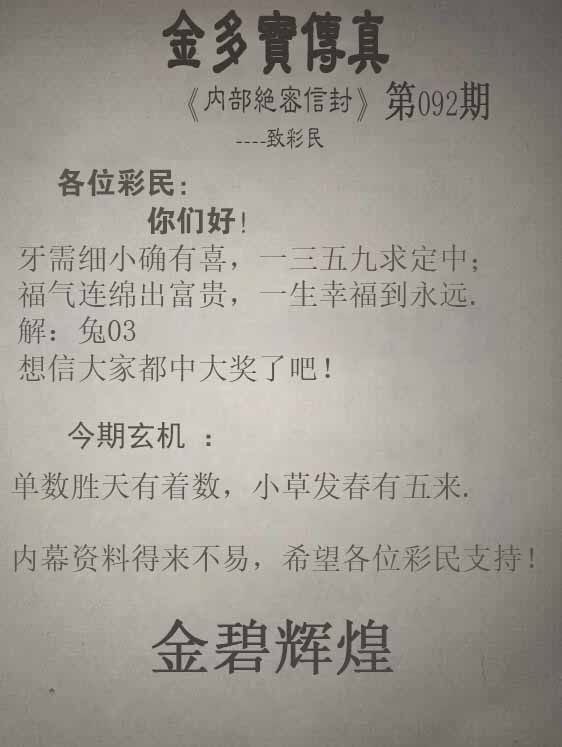 金多寶傳真
《内部絕密信封》第092期
----致彩民
各位彩民：
你们好！
牙需细小确有喜，一三五九求定中；
福气连绵出富贵，一生幸福到永远.
解：兔03
想信大家都中大奖了吧！
今期玄机 ：
单数胜天有着数，小草发春有五来.
内幕资料得来不易，希望各位彩民支持！
金碧辉煌